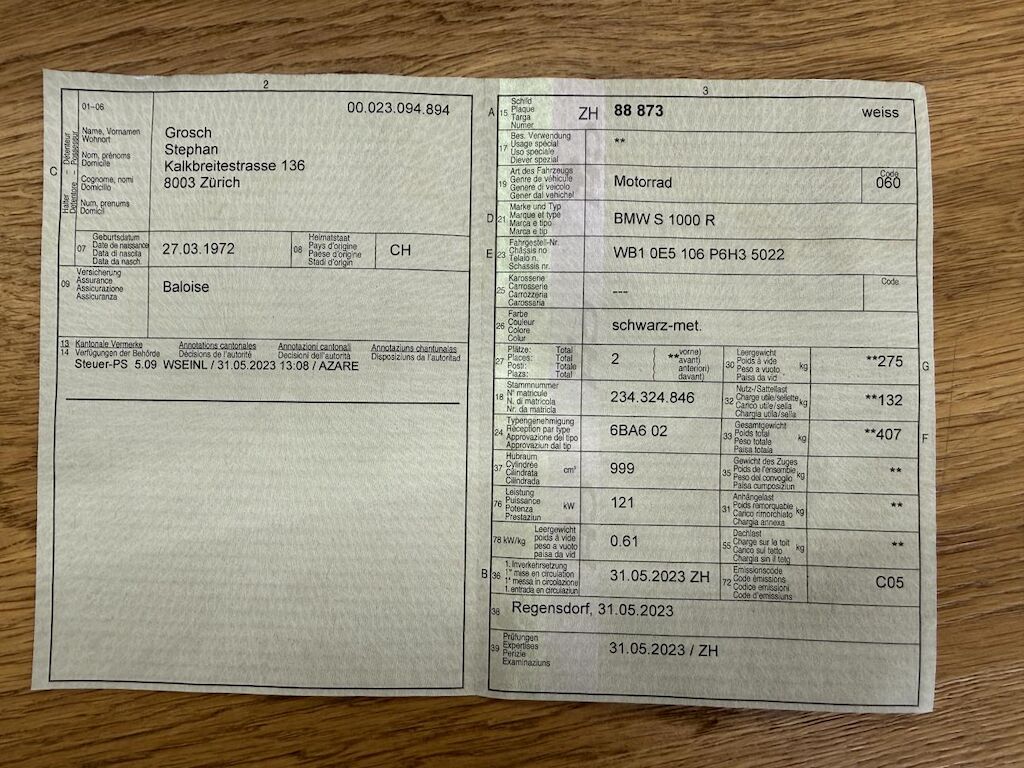 2
01–06
00.023.094.894
C
Halter – Détenteur
Detentore – Possessur
Name, Vornamen
Wohnort
Nom, prénoms
Domicile
Cognome, nomi
Domicilio
Num, prenums
Domicil
Grosch
Stephan
Kalkbreitestrasse 136
8003 Zürich
07
Geburtsdatum
Date de naissance
Data di nascita
Data da nasch.
27.03.1972
08
Heimatstaat
Pays d'origine
Paese d'origine
Stadi d'origin
CH
09
Versicherung
Assurance
Assicurazione
Assicuranza
Baloise
13
14
Kantonale Vermerke
Verfügungen der Behörde
Annotations cantonales
Décisions de l'autorité
Annotazioni cantonali
Decisioni dell'autorità
Annotaziuns chantunalas
Disposiziuns da l'autoritad
Steuer-PS 5.09 WSEINL / 31.05.2023 13:08 / AZARE
3
A
15
Schild
Plaque
Targa
Numer
ZH
88 873
weiss
17
Bes. Verwendung
Usage spécial
Uso speciale
Diever spezial
**
19
Art des Fahrzeugs
Genre de véhicule
Genere di veicolo
Gener dal vehichel
Motorrad
Code
060
D
21
Marke und Typ
Marque et type
Marca e tipo
Marca e tip
BMW S 1000 R
E
23
Fahrgestell-Nr.
Châssis no
Telaio n.
Schassis nr.
WB1 0E5 106 P6H3 5022
25
Karosserie
Carrosserie
Carrozzeria
Carossaria
---
Code
26
Farbe
Couleur
Colore
Colur
schwarz-met.
27
Plätze: Total
Places: Total
Posti: Totale
Plazs: Total
2
**
vorne)
avant)
anteriori)
davant)
30
Leergewicht
Poids à vide
Peso a vuoto
Paisa da vid
kg
**275
G
18
Stammnummer
N° matricule
N. di matricola
Nr. da matricla
234.324.846
32
Nutz-/Sattellast
Charge utile/sellette
Carico utile/sella
Chargia utila/sella
kg
**132
24
Typengenehmigung
Réception par type
Approvazione del tipo
Approvaziun dal tip
6BA6 02
33
Gesamtgewicht
Poids total
Peso totale
Paisa totala
kg
**407
F
37
Hubraum
Cylindrée
Cilindrata
Cilindrada
cm³
999
35
Gewicht des Zuges
Poids de l'ensemble
Peso del convoglio
Paisa cumposiziun
kg
**
76
Leistung
Puissance
Potenza
Prestaziun
kW
121
31
Anhängelast
Poids remorquable
Carico rimorchiato
Chargia annexa
kg
**
78 kW/kg
Leergewicht
poids à vide
peso a vuoto
paisa da vid
0.61
55
Dachlast
Charge sur le toit
Carico sul tetto
Chargia sin il tetg
kg
**
B
36
1. Inverkehrsetzung
1re mise en circulation
1a messa in circolazione
1. entrada en circulaziun
31.05.2023 ZH
72
Emissionscode
Code émissions
Codice emissioni
Code d'emissiuns
C05
38
Regensdorf, 31.05.2023
39
Prüfungen
Expertises
Perizie
Examinaziuns
31.05.2023 / ZH